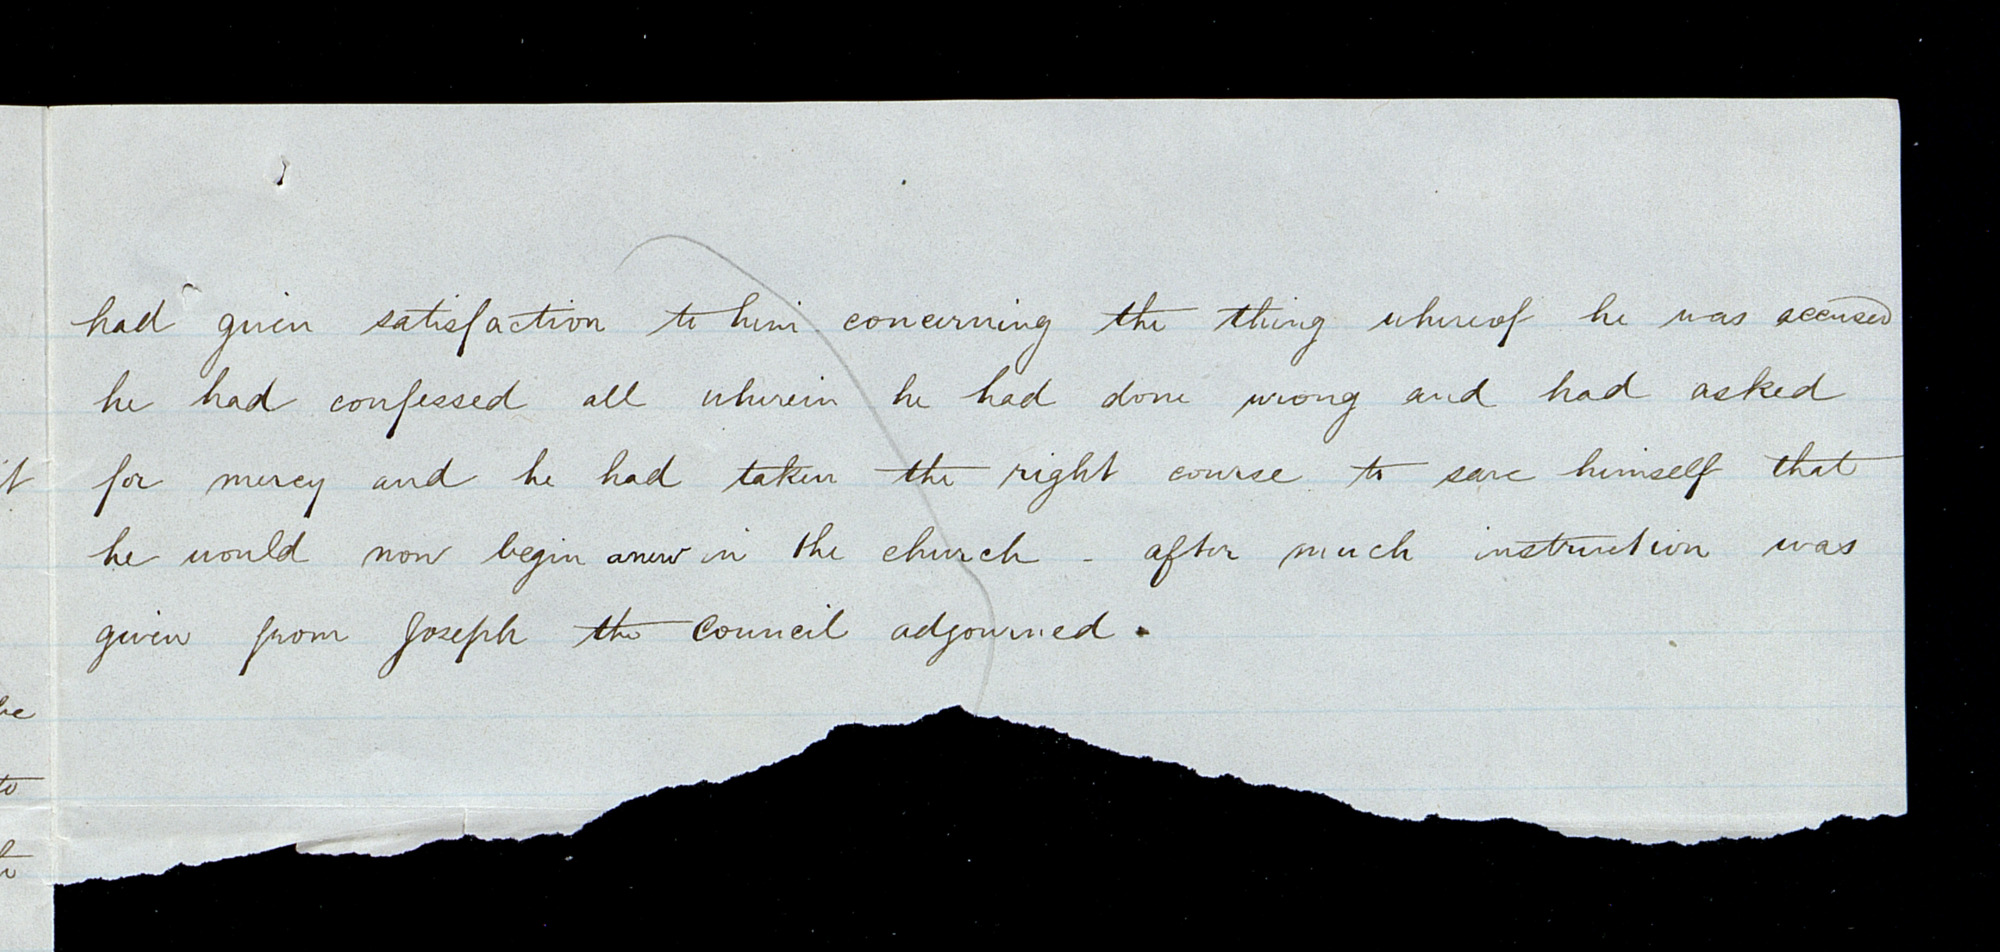 had given satisfaction to him concerning the thing whereof he was accused
he had confessed all wherein he had done wrong and had asked
for mercy and he had taken the right course to save himself that
he would now begin anew in the church - after much instruction was
given from Joseph the Council adjourned.